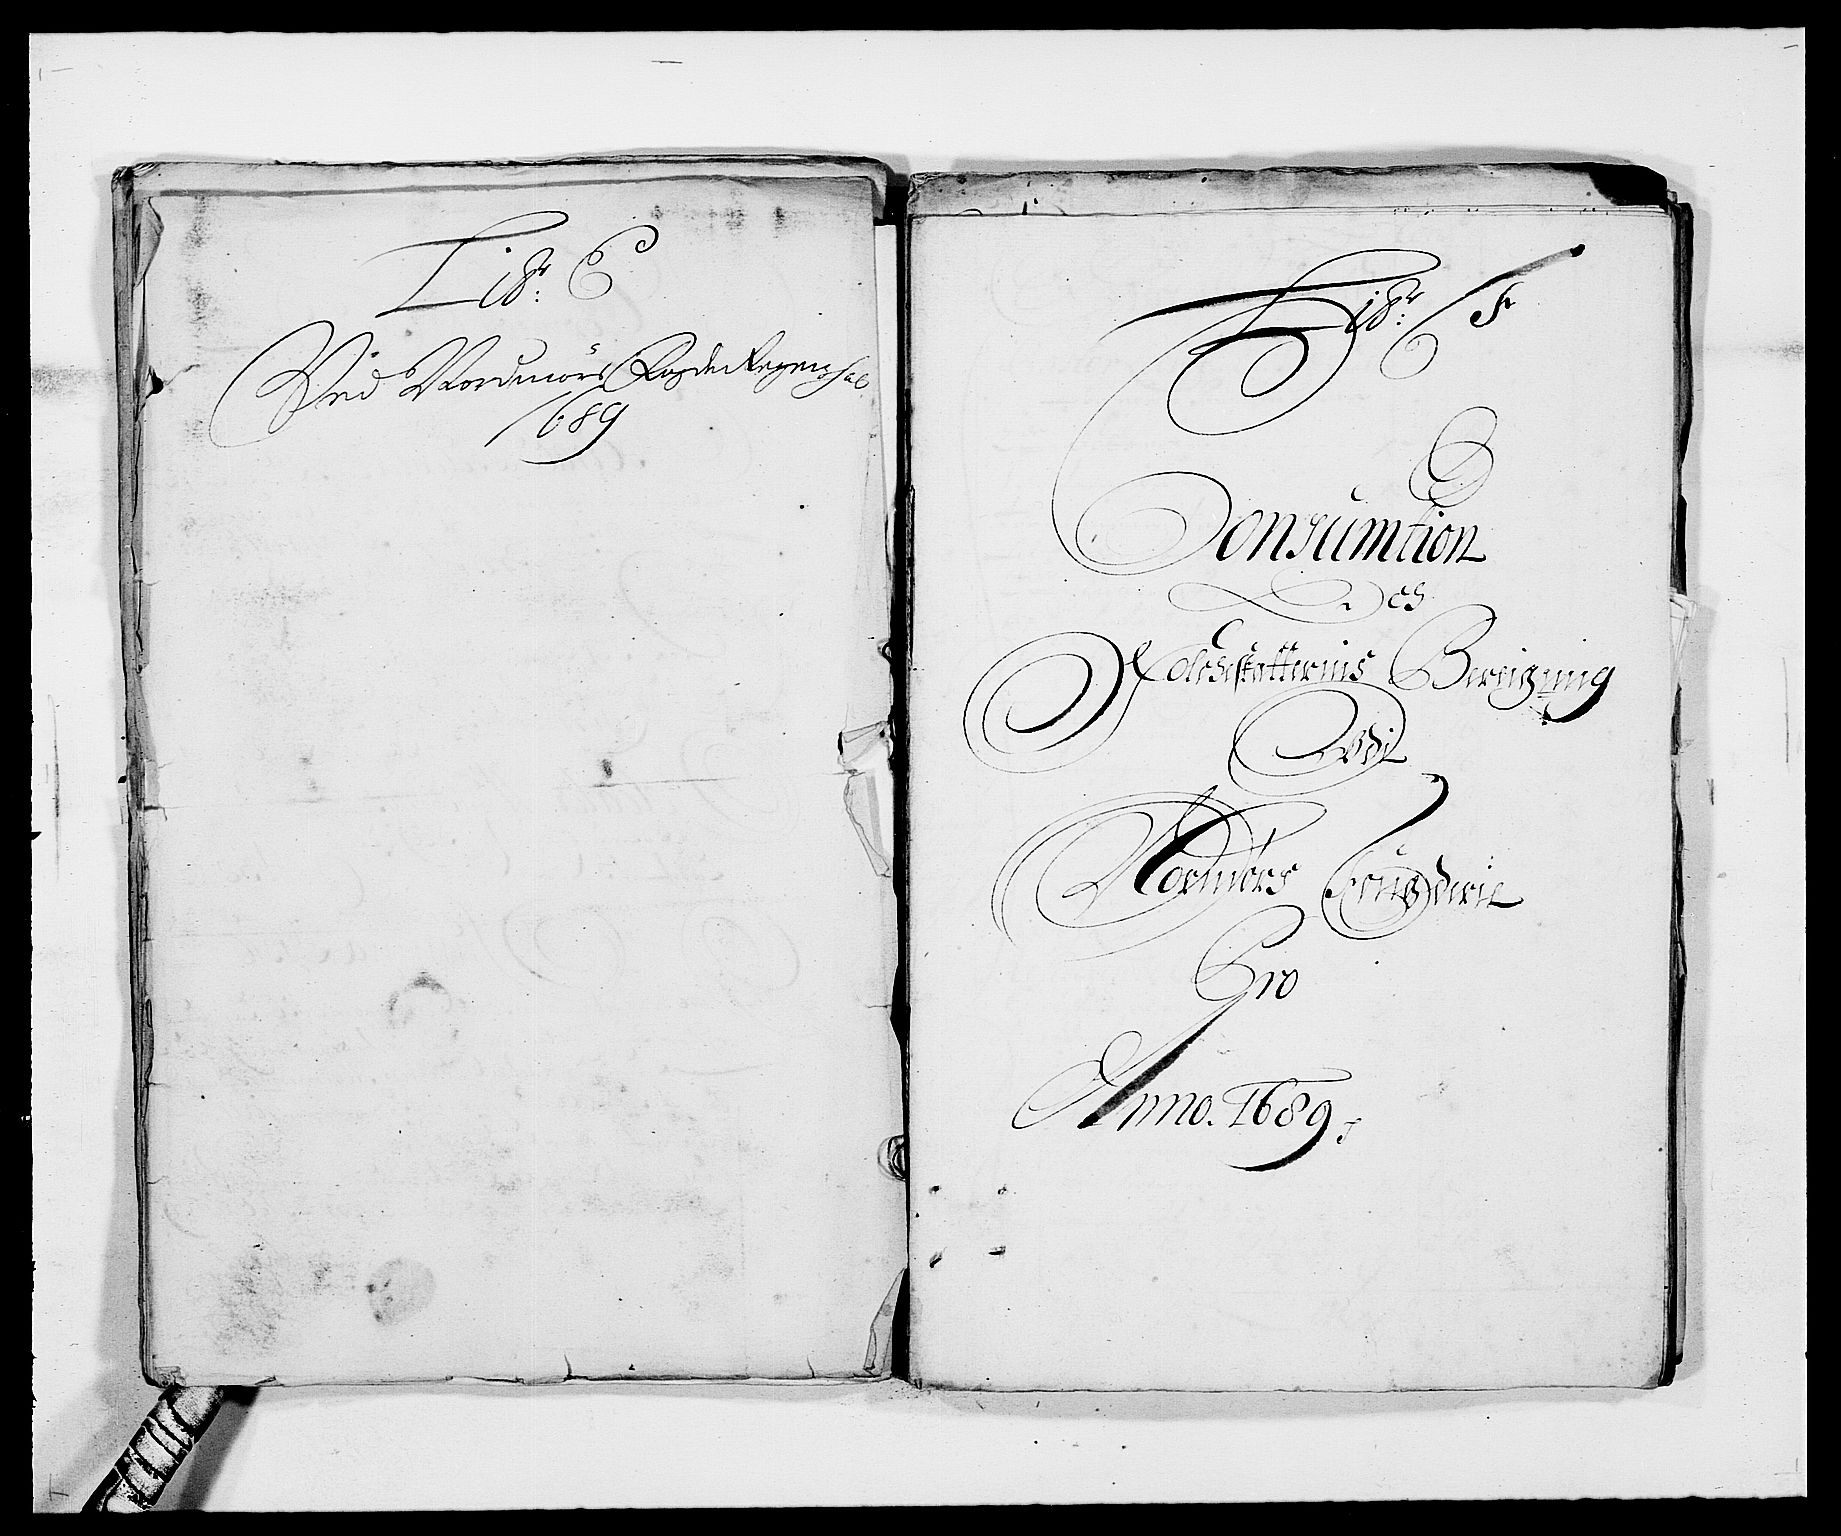 Litr: E
Ved Nordmörs Fogderi Regenschab
1689
Litr: F
Consumtion
och
Folcheskatternis Beregning
Udi
Normörs Fougderie
Pro
Anno. 1689